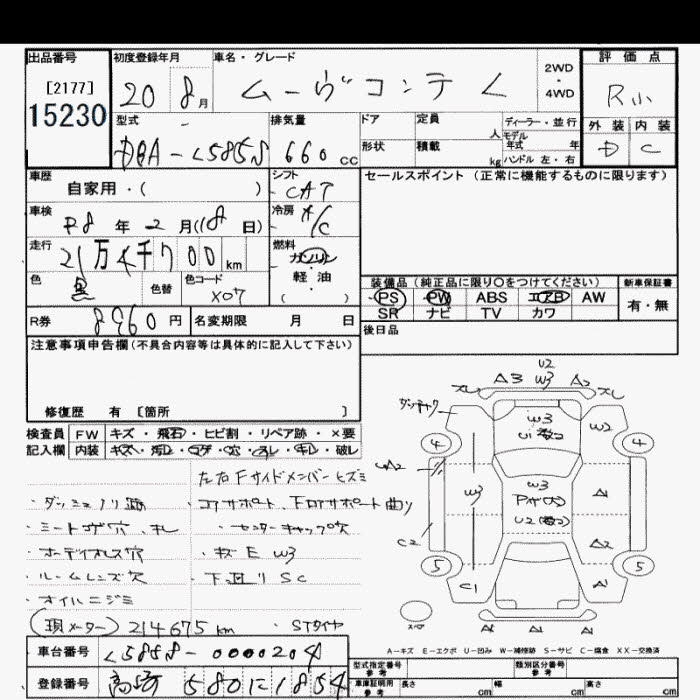 出品番号
[2177]
15230
初度登録年月
20 8月
車名・グレード
ムーヴコンテ L
2WD
・
4WD
評価点
R小
外装 内装
D C
型式
DBA-L585S
排気量
660 cc
ドア
定員
人
形状
積載
kg
ディーラー・並行
モデル
年式 年
ハンドル 左・右
車歴
自家用・( )
シフト
CAT
セールスポイント (正常に機能するものに限ります)
車検
R8年2月(18日)
冷房
A/C
走行
21万4千700km
燃料
ガソリン
・
軽・油
( )
色
黒
色替
色コード
X07
装備品 (純正品に限り○をつけてください)
PS PW ABS エアB AW
SR ナビ TV カワ
新車保証書
有・無
R券
8960円
名変期限 月 日
後日品
注意事項申告欄(不具合内容等は具体的に記入して下さい)
修復歴 有 [箇所 ]
検査員
記入欄
FW キズ・飛石・ヒビ割・リペア跡・×要
内装 キズ・汚レ・コゲ・穴・スレ・キレ・破レ
左右Fサイドメンバーヒズミ
・ダッシュノリ跡
・コアサポート、下コアサポート曲リ
・シートコゲ穴、キレ
・センターキャップ欠
・オーディオレス穴
・キズE W3
・ルームレンズ欠
・下回リSC
・オイルニジミ
(現メーター) 214675km
・STタイヤ
車台番号
L585S-0000204
登録番号
高崎 580に1854
U2
A3 W3 A2
W3
W2
4 4
W3
W3
A1
U2
C2
A2
5 5
C1
A1
A1 A1 A1
A-キズ E-エクボ U-凹み W-補修跡 S-サビ C-腐食 XX-交換済
型式指定番号
参考
類別区分番号
参考
車庫証明用
参考
長さ cm
幅 cm
高さ cm